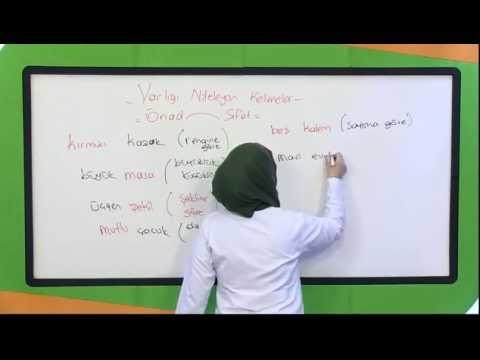 - Varlığı Niteleyen Kelimeler -
= Önad Sıfat =
kırmızı kazak (rengine göre)
büyük masa (büyüklük
üçgen şekil (şekline göre
mutlu çocuk (
beş kalem (sayısına göre)
mavi